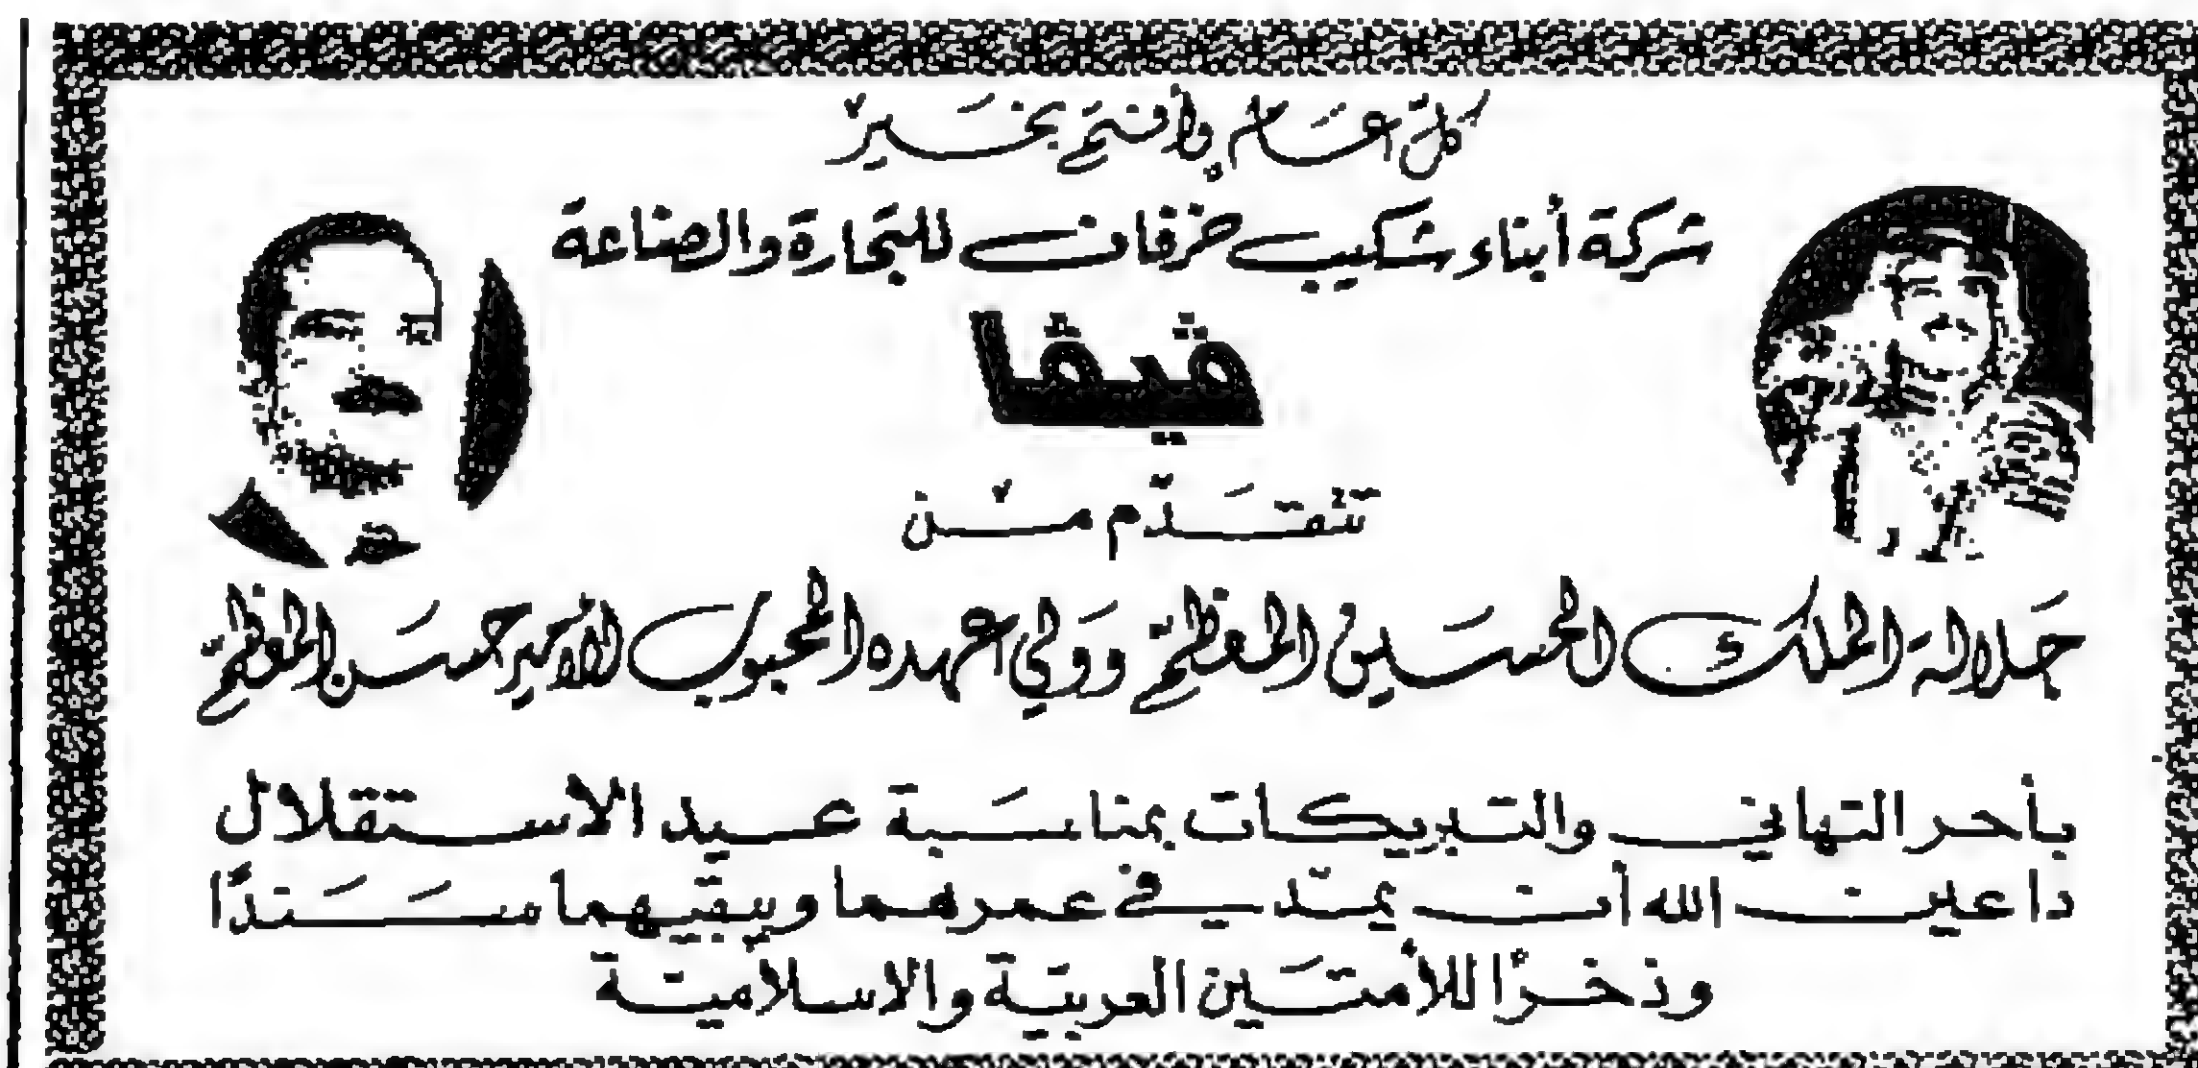 كل عام وأنتم بخير
شركة أبناء شكيب خرفان للتجارة والصناعة
ڤيڤا
تتقدّم من
جلالة الملك الحسين المعظم وولي عهده المحبوب الأمير حسن المعظم
بأحر التهاني والتبريكات بمناسبة عيد الاستقلال
داعين الله أن يمدّ في عمرهما ويبقيهما سندًا
وذخرًا للأمتين العربيّة والاسلاميّة